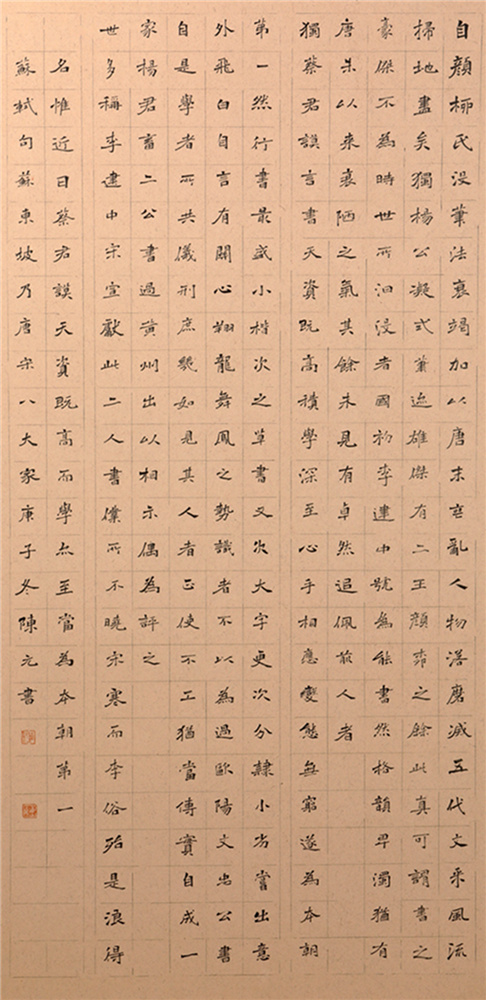 自顏柳氏沒筆法衰竭加以唐末喪亂人物磨滅五代文采風流
掃地盡矣獨楊公凝式筆迹雄傑有二王顏柳之餘此真可謂書之
豪傑不為時世所汩沒者國初李建中號為能書然格韻卑濁猶有
唐末以來衰陋之氣其餘未見有卓然追佩前人者
獨蔡君謨言書天資既高積學深至心手相應變態無窮遂為本朝
第一然行書最盛小楷次之草書又次大字更次分隸小劣嘗出意
外飛白自言有關心翔龍舞鳳之勢識者不以為過歐陽文忠公書
自是學者所共儀刑庶幾如見其人者正使不工猶當傳寶自成一
家楊君畜二公書過黃州出以相示偶為評之
世多稱李建中宋宣獻此二人書僕所不曉宋寒而李俗殆是浪得
名惟近日蔡君謨天資既高而學亦至當為本朝第一
蘇軾句蘇東坡乃唐宋八大家庚子冬陳元書